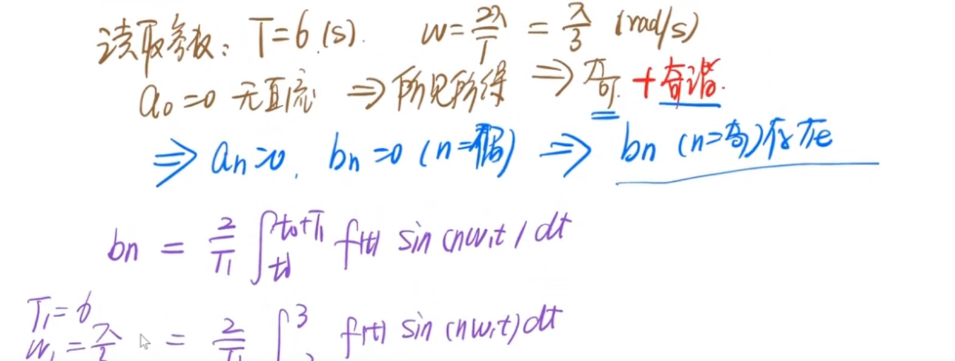 读取参数: T=6 (s). w=2π/T = π/3 (rad/s)
a₀=0 无直流 ⇒ 所见所得 ⇒ 奇 + 奇谐.
⇒ aₙ=0, bₙ=0 (n=偶) ⇒ bₙ (n=奇) 存在
bₙ = 2/T₁ ∫_{t₀}^{t₀+T₁} f(t) sin (nw₁t) dt
T₁=6
w₁=π/3 = 2/T₁ ∫^3 f(t) sin (nw₁t) dt